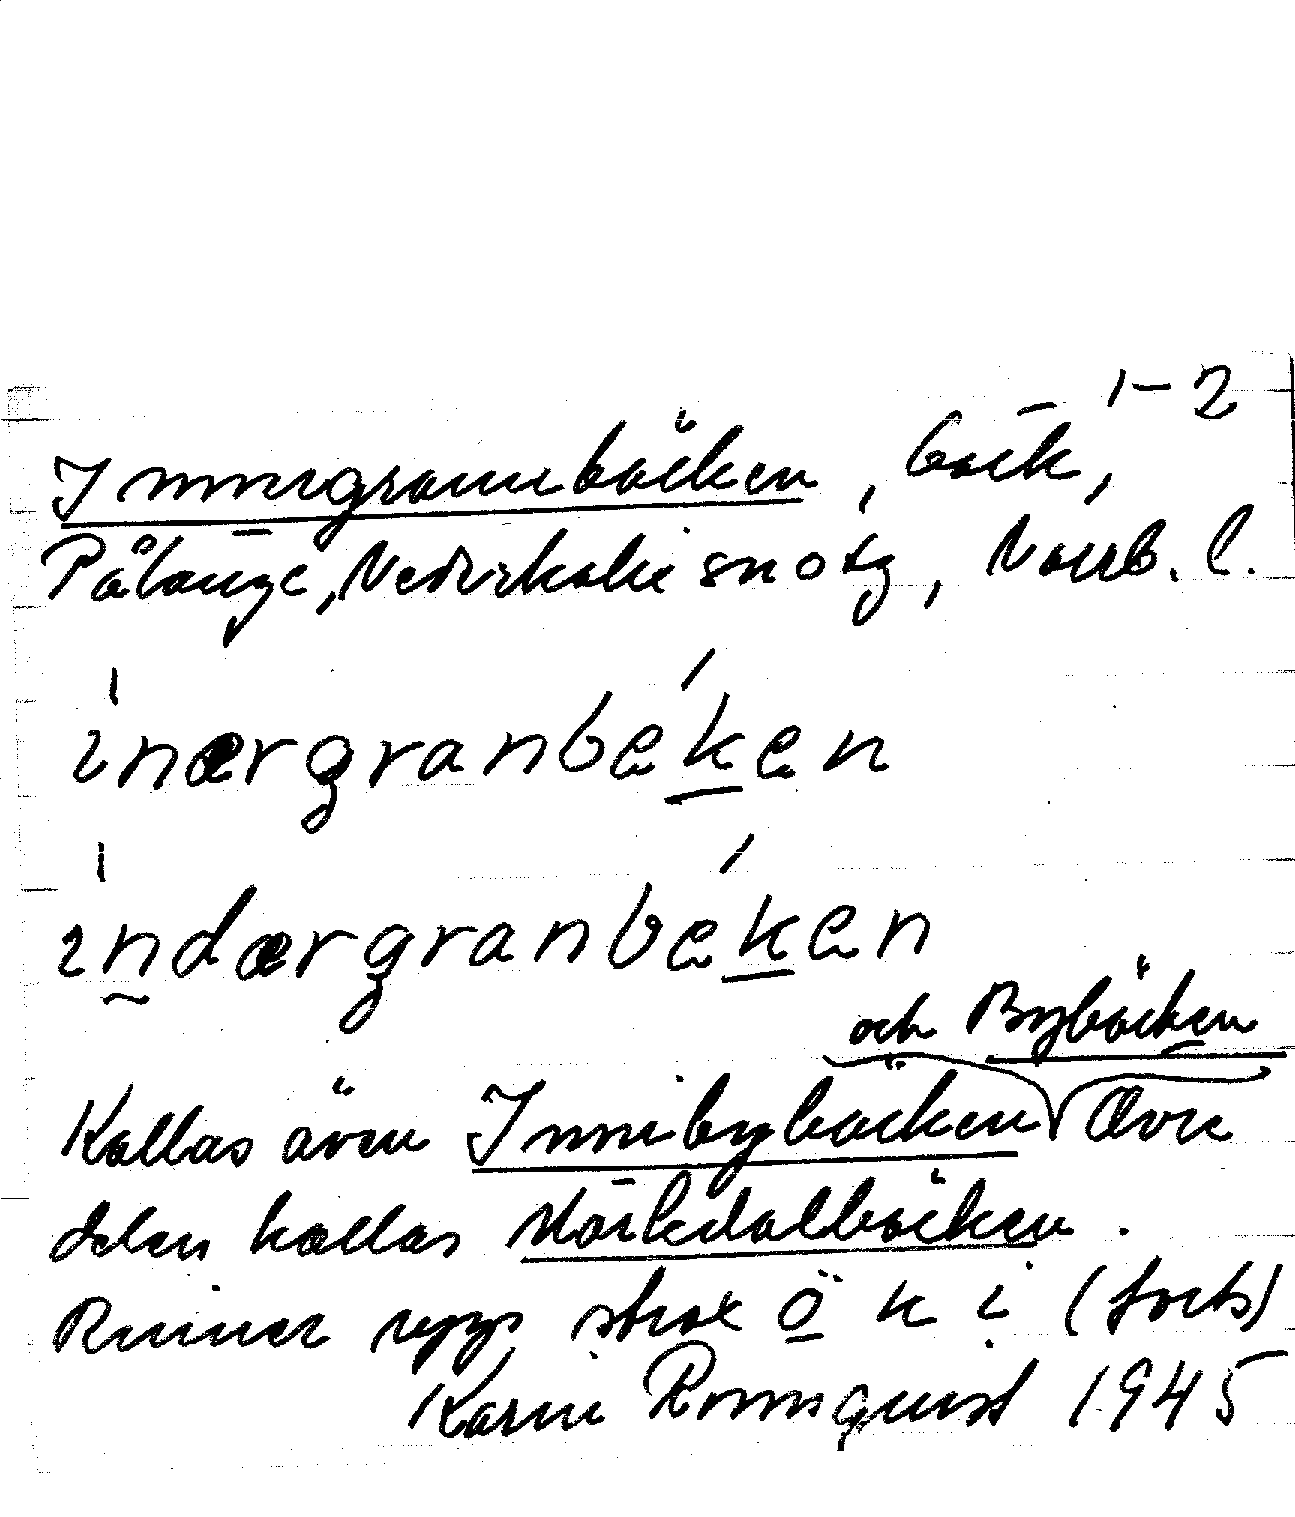 1-2
Innergranbäcken, bäck,
Pålänge, Nederkalix snotg, Norrb. l.
inærgranbeken
indærgranbeken
och Bybäcken
Kallas även Innibybäcken Övre
delen kallas Mörkdalbäcken.
Rinner upp strax ö k i (forts)
Karin Rönnquist 1945